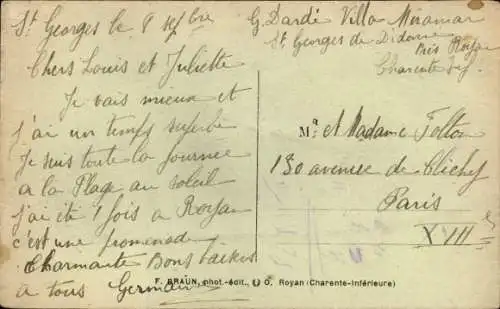 St Georges le 8 7bre
Chers Louis et Juliette
Je vais mieux et
j'ai un temps superbe
Je suis toute la journee
a la Plage au soleil
j'ai été 1 fois a Royan
c'est une promenade
Charmante Bons baisers
a tous Germaine
G. Dardé Villa Miramar
St Georges de Didonne
Près Royan
Charente Inf.
Mr et Madame Felton
130 avenue de Clichy
Paris
XVII
F. BRAUN, phot.-édit., Royan (Charente-Inférieure)